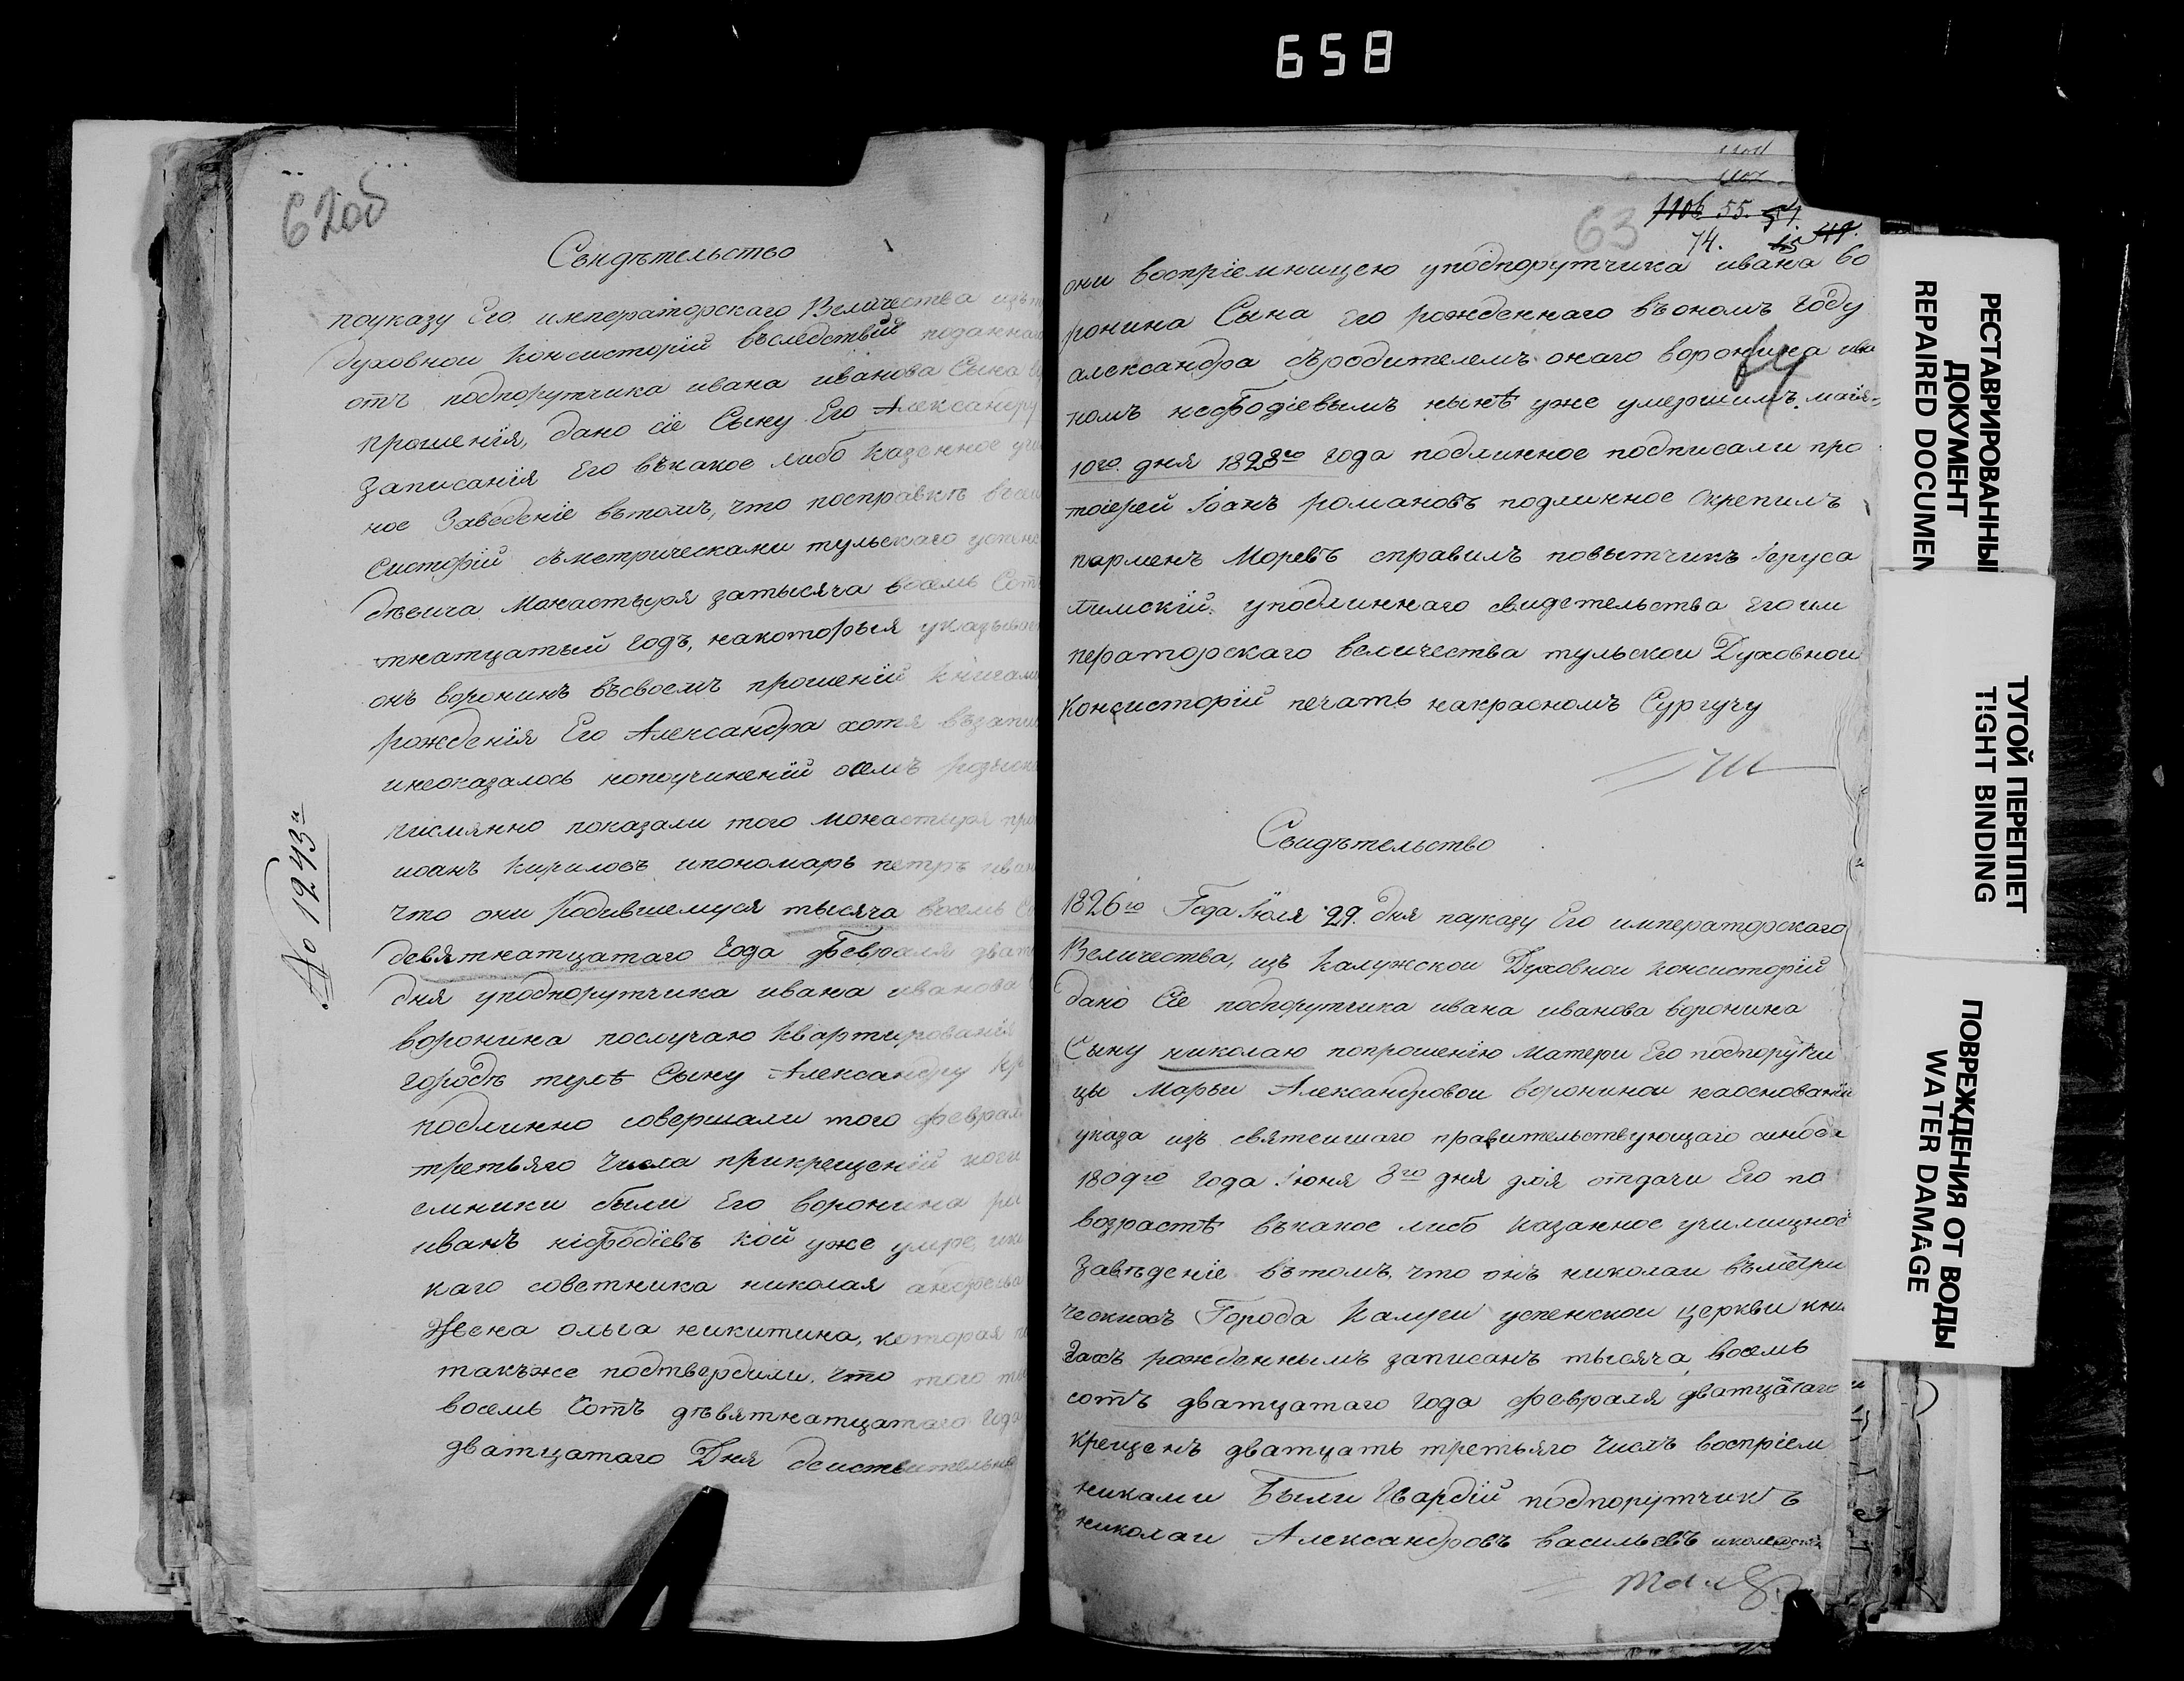 658
62об
Свидѣтельство
поуказу Его императорскаго Величества изъ
духовнои консисторіи въследствіе поданнаго
отъ подпорутчика ивана иванова Сына
прошенія, дано сіе Сыну Его Александру
записанія Его въкакое либо казенное
ное Заведеніе вътомъ, что посправкѣ
систоріи съметрическами тульскаго
дѣвича монастыря затысяча восемь Сот
тнатцатый годъ, накоторыя указывает
онъ воронинъ въсвоемъ прошеніи книгами
рожденія Его Александра хотя възапи
инеоказалось нопоучиненіи осемъ
писмянно показали того монастыря
иоанъ кириловъ ипономарь петръ иван
что они родившемуся тысяча восемь
девятнатцатаго года февраля дват
дня уподпорутчика ивана иванова
воронина послучаю квартированія
городѣ тулѣ Сыну Александру кр
подлинно совершали того февраля
третьяго числа прикрещеніи
емники были Его воронина
иванъ нефодіевъ кой уже умре,
каго советника николая андреева
Жена ольга никитина, которая
такъже подтвердили, что того
восемь сотъ дѣвятнатцатаго года
дватцатаго Дня деиствительно
№ 1243й
63
1106 55. 51.
74.
они воспріемницею уподпорутчика ивана во
ронина Сына его рожденнаго въономъ году
александра съродителемъ онаго воронина ива
номъ нефодіевымъ нынѣ уже умершимъ. маія
10го дня 1823го года подлинное подписали про
тоіерей Іоанъ романовъ подлинное скрепилъ
парменъ Моревъ справилъ повытчикъ Іеруса
лимскій. уподлиннаго свидетельства его им
ператорскаго величества тульскои Духовнои
консисторіи печать накрасномъ Сургучу
Свидѣтельство
1826го Года Іюля 29. дня пауказу Его императорскаго
Величества, изъ калужскои Духовнои консисторіи
дано Сіе подпорутчика ивана иванова воронина
Сыну николаю попрошенію матери Его подпорутчи
цы Марьи Александровои воронинои наоснованіи
указа изъ святеишаго правительствующаго синода
1809го года іюня 8го дня для отдачи Его по
возрастѣ въкакое либо казанное училищное
завѣденіе вътомъ, что онъ николаи въметри
ческихъ Города калуги успенскои церкви кни
гахъ рожденнымъ записанъ тысяча восемь
сотъ дватцатаго года февраля дватцатаго
крещенъ дватцать третьяго числъ воспріем
никами были гвардіи подпорутчикъ
николаи Александровъ васильевъ
РЕСТАВРИРОВАННЫ
ДОКУМЕНТ
REPAIRED DOCUMEN
ТУГОЙ ПЕРЕПЛЕТ
TIGHT BINDING
ПОВРЕЖДЕНИЯ ОТ ВОДЫ
WATER DAMAGE